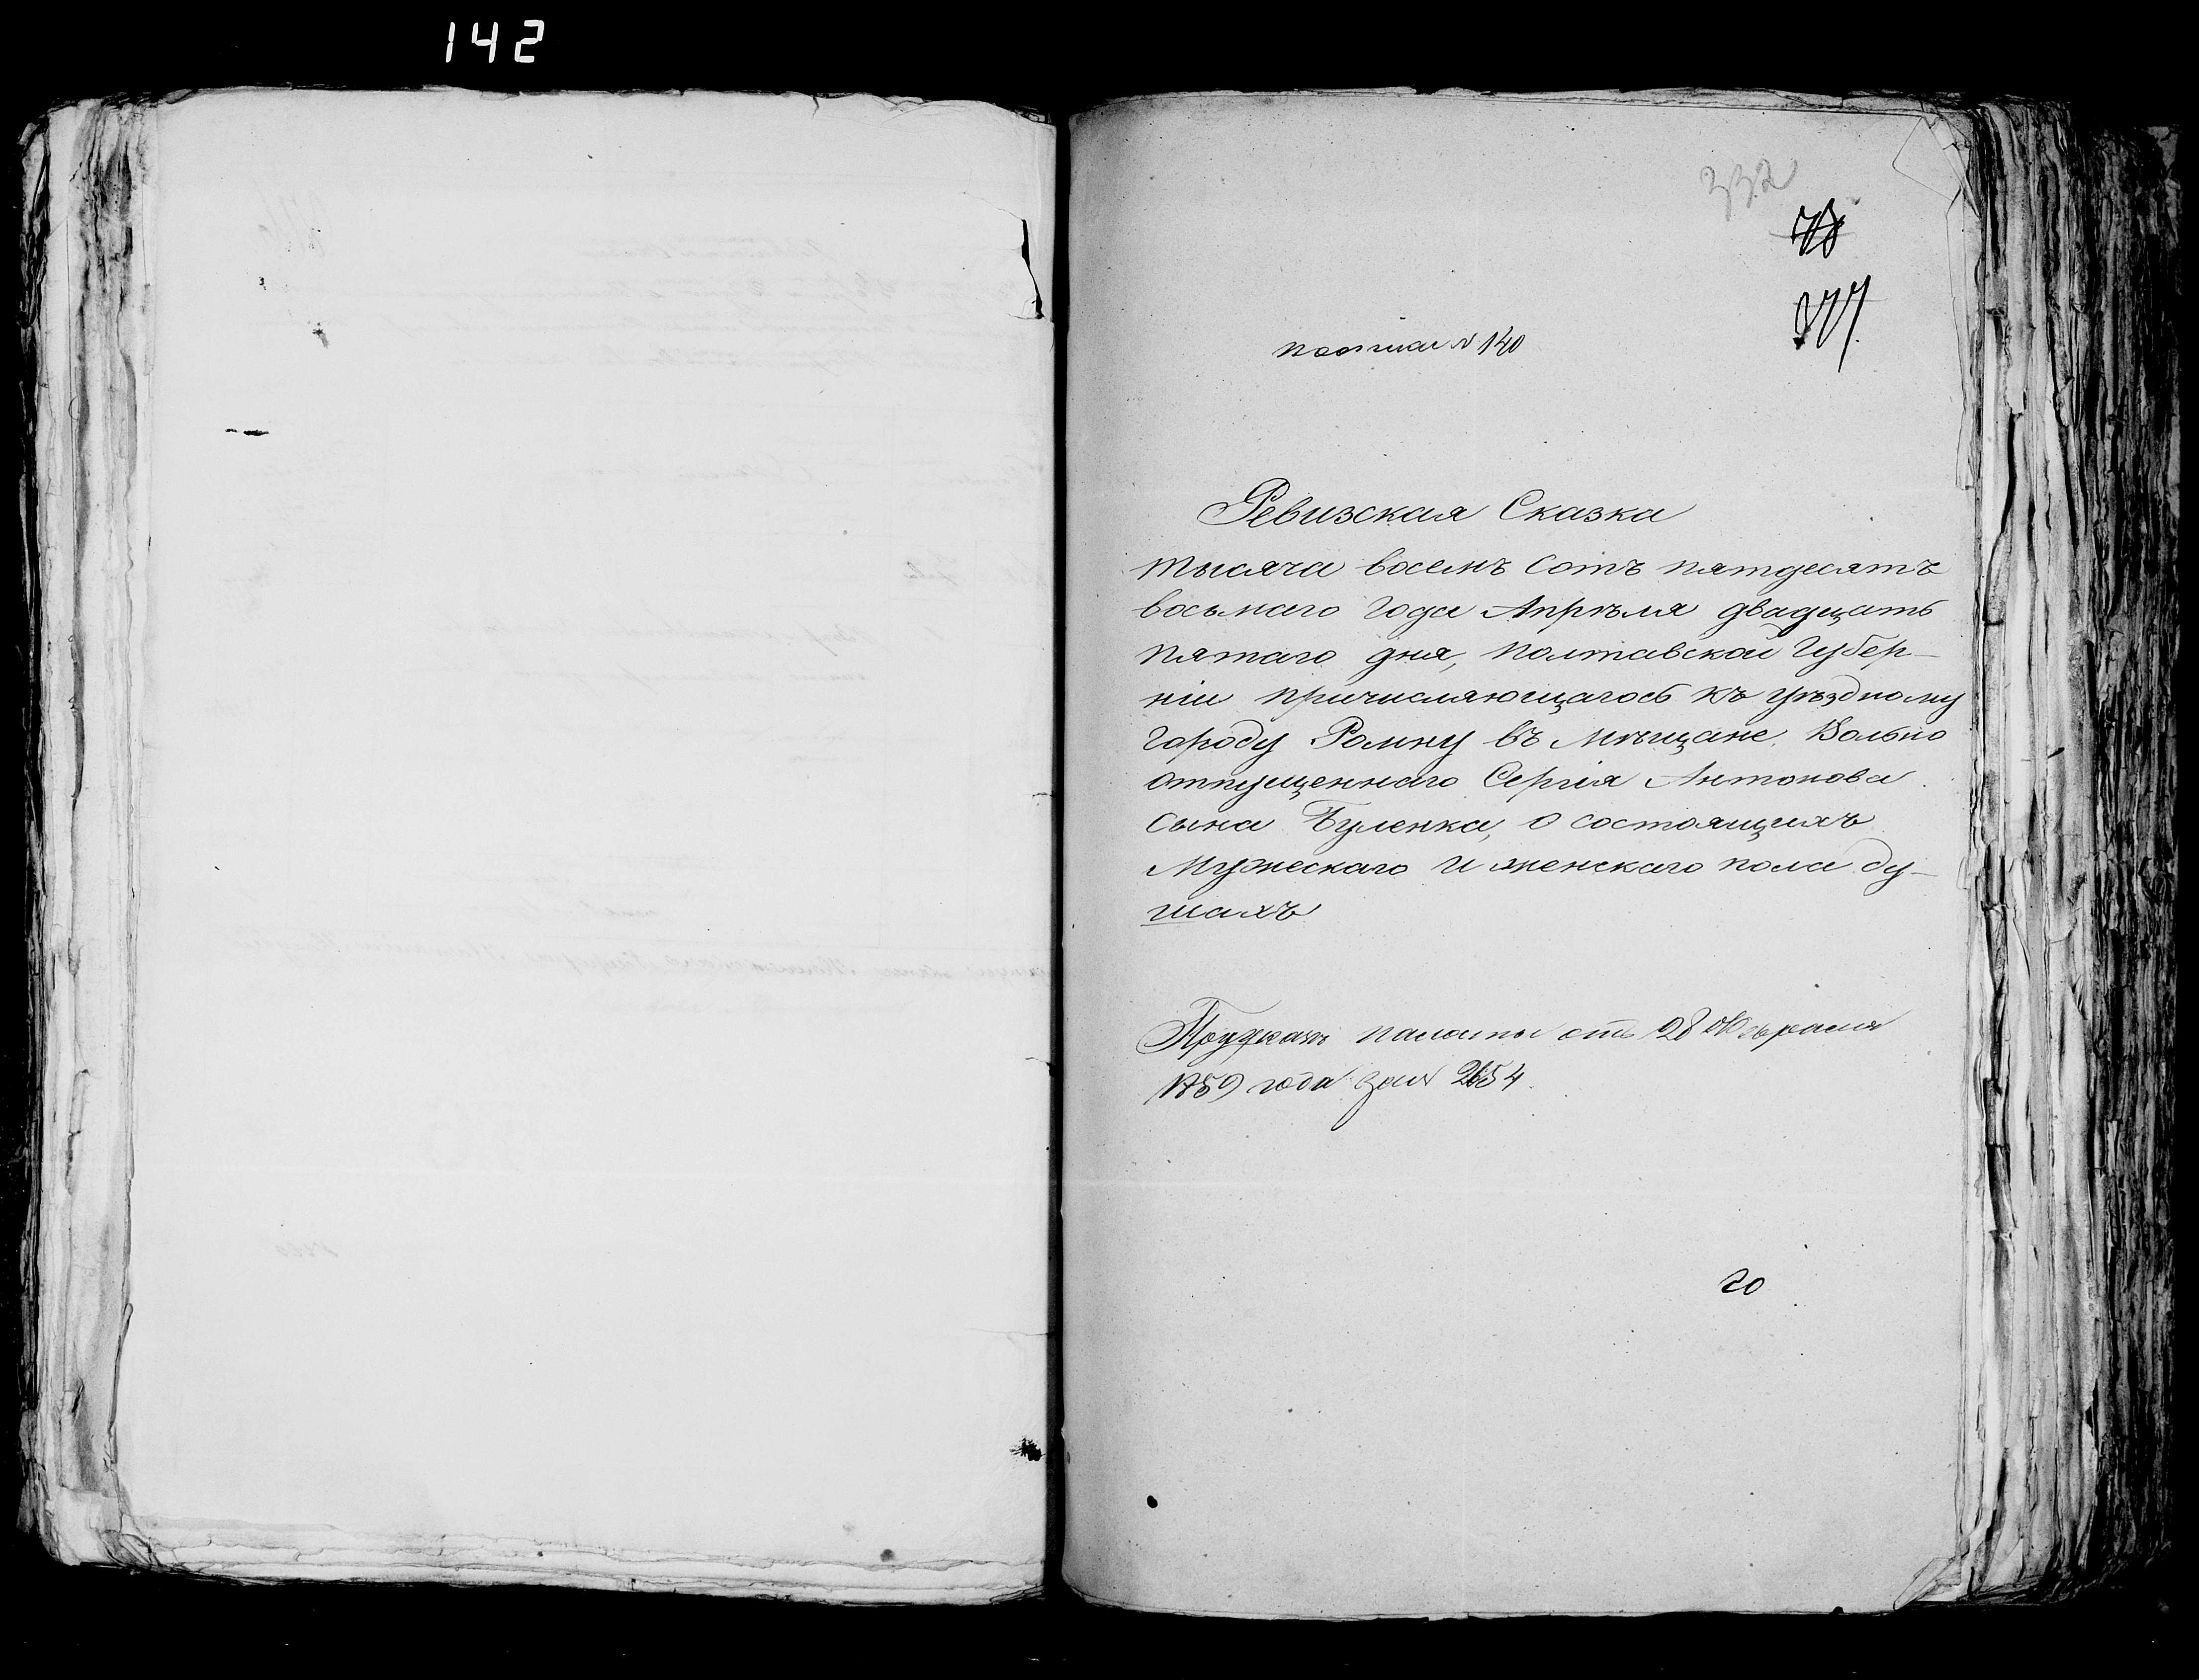 142
332
78
377.
№ 140
Ревизская Сказка
тысяча восемъ сотъ пятдесятъ
восьмаго года Апрѣля двадцать
пятаго дня, Полтавской Губер-
ніи причисляющагось къ уѣздному
городу Ромну въ мѣщане, Вольно
отпущеннаго Сергія Антонова
сына Буленка, о состоящихъ
Мужескаго и женскаго пола ду-
шахъ
палаты отъ 28 Февраля
1859 года за № 2654.
20